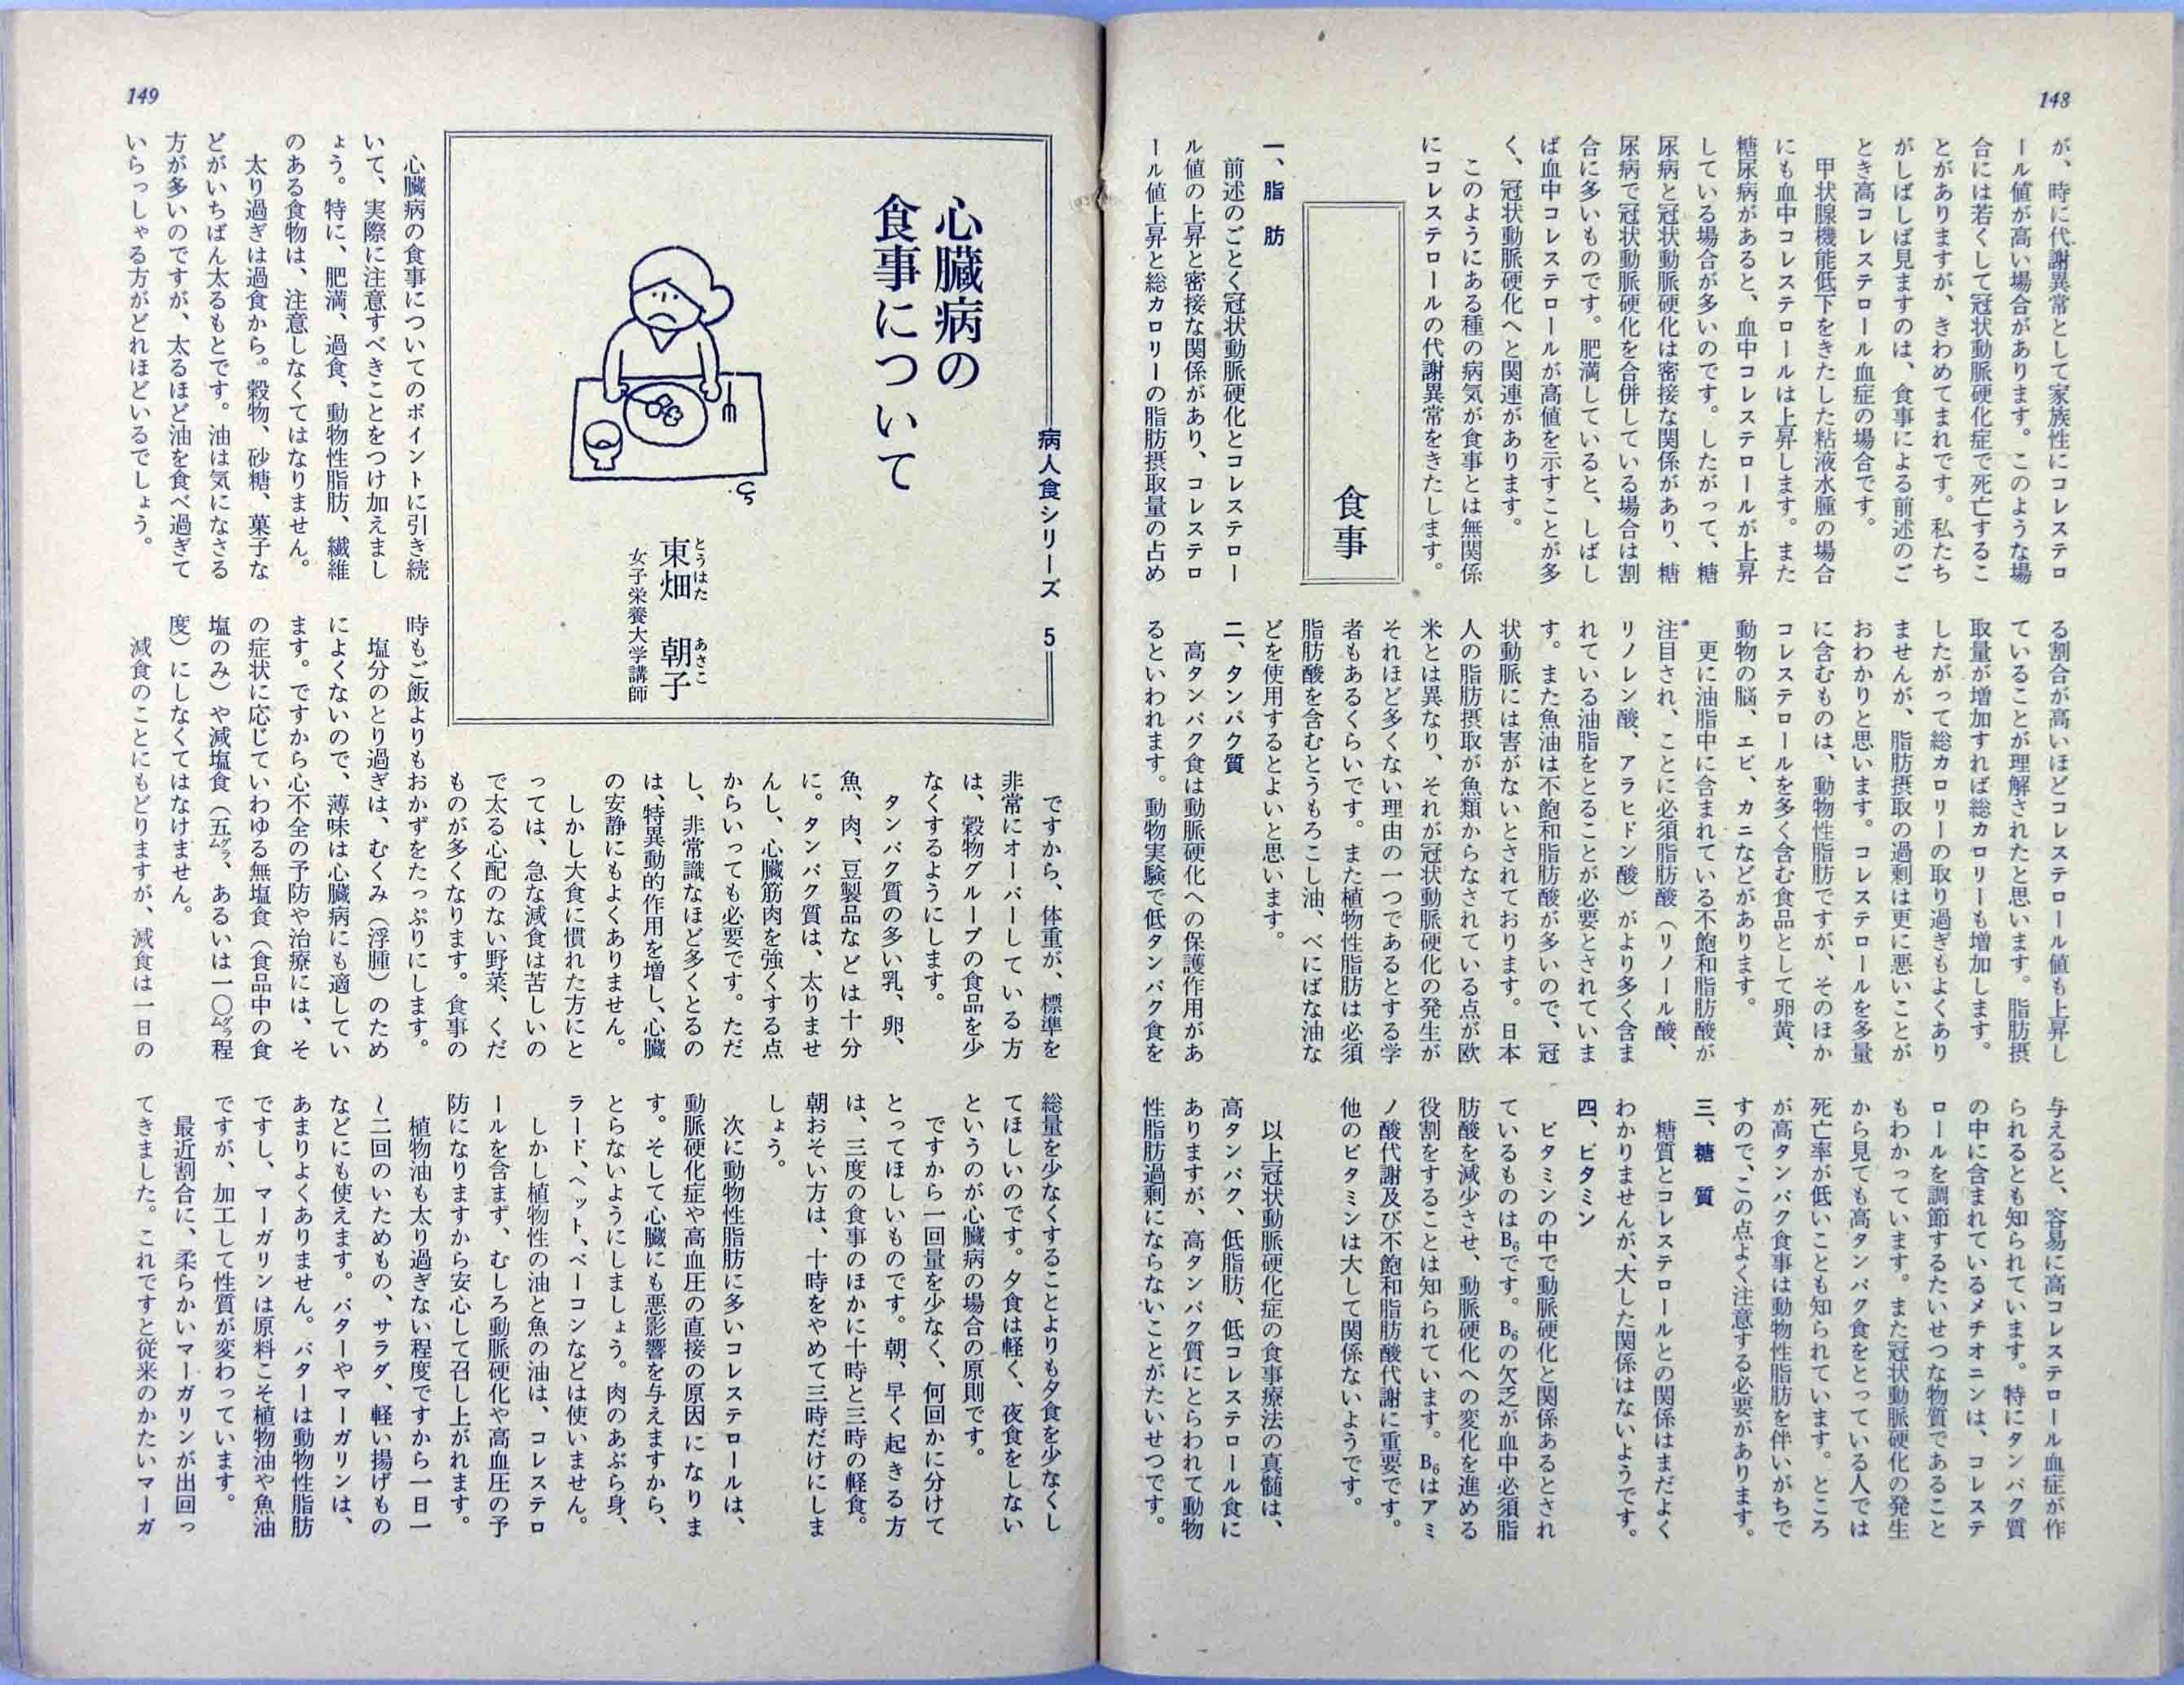 148
が、時に代謝異常として家族性にコレステロ
ール値が高い場合があります。このような場
合には若くして冠状動脈硬化症で死亡するこ
とがありますが、きわめてまれです。私たち
がしばしば見ますのは、食事による前述のご
とき高コレステロール血症の場合です。
甲状腺機能低下をきたした粘液水腫の場合
にも血中コレステロールは上昇します。また
糖尿病があると、血中コレステロールが上昇
している場合が多いのです。したがって、糖
尿病と冠状動脈硬化は密接な関係があり、糖
尿病で冠状動脈硬化を合併している場合は割
合に多いものです。肥満していると、しばし
ば血中コレステロールが高値を示すことが多
く、冠状動脈硬化へと関連があります。
このようにある種の病気が食事とは無関係
にコレステロールの代謝異常をきたします。
食事
一、脂 肪
前述のごとく冠状動脈硬化とコレステロー
ル値の上昇と密接な関係があり、コレステロ
ール値上昇と総カロリーの脂肪摂取量の占め
る割合が高いほどコレステロール値も上昇し
ていることが理解されたと思います。脂肪摂
取量が増加すれば総カロリーも増加します。
したがって総カロリーの取り過ぎもよくあり
ませんが、脂肪摂取の過剰は更に悪いことが
おわかりと思います。コレステロールを多量
に含むものは、動物性脂肪ですが、そのほか
コレステロールを多く含む食品として卵黄、
動物の脳、エビ、カニなどがあります。
更に油脂中に含まれている不飽和脂肪酸が
注目され、ことに必須脂肪酸（リノール酸、
リノレン酸、アラヒドン酸）がより多く含ま
れている油脂をとることが必要とされていま
す。また魚油は不飽和脂肪酸が多いので、冠
状動脈には害がないとされております。日本
人の脂肪摂取が魚類からなされている点が欧
米とは異なり、それが冠状動脈硬化の発生が
それほど多くない理由の一つであるとする学
者もあるくらいです。また植物性脂肪は必須
脂肪酸を含むとうもろこし油、べにばな油な
どを使用するとよいと思います。
二、タンパク質
高タンパク食は動脈硬化への保護作用があ
るといわれます。動物実験で低タンパク食を
与えると、容易に高コレステロール血症が作
られるとも知られています。特にタンパク質
の中に含まれているメチオニンは、コレステ
ロールを調節するたいせつな物質であること
もわかっています。また冠状動脈硬化の発生
から見ても高タンパク食をとっている人では
死亡率が低いことも知られています。ところ
が高タンパク食事は動物性脂肪を伴いがちで
すので、この点よく注意する必要があります。
三、糖 質
糖質とコレステロールとの関係はまだよく
わかりませんが、大した関係はないようです。
四、ビタミン
ビタミンの中で動脈硬化と関係あるとされ
ているものはB₆です。B₆の欠乏が血中必須脂
肪酸を減少させ、動脈硬化への変化を進める
役割をすることは知られています。B₆はアミ
ノ酸代謝及び不飽和脂肪酸代謝に重要です。
他のビタミンは大して関係ないようです。
以上冠状動脈硬化症の食事療法の真髄は、
高タンパク、低脂肪、低コレステロール食に
ありますが、高タンパク質にとらわれて動物
性脂肪過剰にならないことがたいせつです。
149
病人食シリーズ 5
心臓病の
食事について
東畑 朝子
とうはた あさこ
女子栄養大学講師
心臓病の食事についてのポイントに引き続
いて、実際に注意すべきことをつけ加えまし
ょう。特に、肥満、過食、動物性脂肪、繊維
のある食物は、注意しなくてはなりません。
太り過ぎは過食から。穀物、砂糖、菓子な
どがいちばん太るもとです。油は気になさる
方が多いのですが、太るほど油を食べ過ぎて
いらっしゃる方がどれほどいるでしょう。
ですから、体重が、標準を
非常にオーバーしている方
は、穀物グループの食品を少
なくするようにします。
タンパク質の多い乳、卵、
魚、肉、豆製品などは十分
に。タンパク質は、太りませ
んし、心臓筋肉を強くする点
からいっても必要です。ただ
し、非常識なほど多くとるの
は、特異動的作用を増し、心臓
の安静にもよくありません。
しかし大食に慣れた方にと
っては、急な減食は苦しいの
で太る心配のない野菜、くだ
ものが多くなります。食事の
時もご飯よりもおかずをたっぷりにします。
塩分のとり過ぎは、むくみ（浮腫）のため
によくないので、薄味は心臓病にも適してい
ます。ですから心不全の予防や治療には、そ
の症状に応じていわゆる無塩食（食品中の食
塩のみ）や減塩食（五グラム、あるいは一〇グラム程
度）にしなくてはなけません。
減食のことにもどりますが、減食は一日の
総量を少なくすることよりも夕食を少なくし
てほしいのです。夕食は軽く、夜食をしない
というのが心臓病の場合の原則です。
ですから一回量を少なく、何回かに分けて
とってほしいものです。朝、早く起きる方
は、三度の食事のほかに十時と三時の軽食。
朝おそい方は、十時をやめて三時だけにしま
しょう。
次に動物性脂肪に多いコレステロールは、
動脈硬化症や高血圧の直接の原因になりま
す。そして心臓にも悪影響を与えますから、
とらないようにしましょう。肉のあぶら身、
ラード、ヘット、ベーコンなどは使いません。
しかし植物性の油と魚の油は、コレステロ
ールを含まず、むしろ動脈硬化や高血圧の予
防になりますから安心して召し上がれます。
植物油も太り過ぎない程度ですから一日一
〜二回のいためもの、サラダ、軽い揚げもの
などにも使えます。バターやマーガリンは、
あまりよくありません。バターは動物性脂肪
ですし、マーガリンは原料こそ植物油や魚油
ですが、加工して性質が変わっています。
最近割合に、柔らかいマーガリンが出回っ
てきました。これですと従来のかたいマーガ